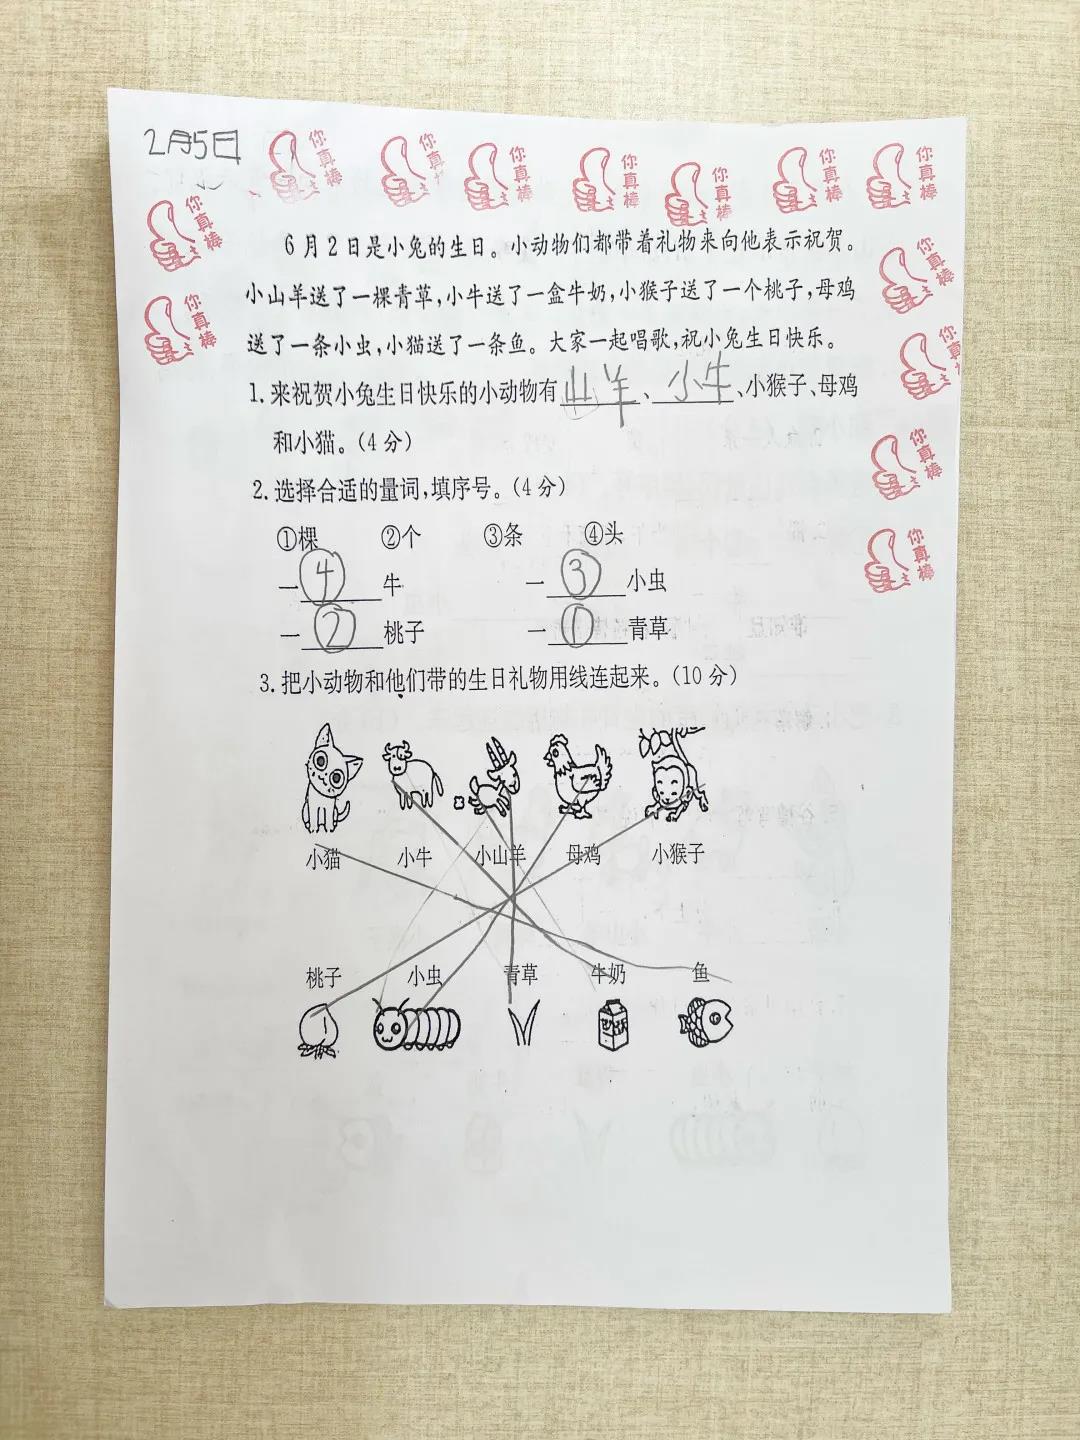 2月5日
你真棒
你真棒
你真棒
你真棒
你真棒
你真棒
你真棒
你真棒
你真棒
你真棒
你真棒
你真棒
你真棒
6月2日是小兔的生日。小动物们都带着礼物来向他表示祝贺。
小山羊送了一棵青草,小牛送了一盒牛奶,小猴子送了一个桃子,母鸡
送了一条小虫,小猫送了一条鱼。大家一起唱歌,祝小兔生日快乐。
1.来祝贺小兔生日快乐的小动物有山羊、小牛、小猴子、母鸡
和小猫。(4分)
2.选择合适的量词,填序号。(4分)
①棵 ②个 ③条 ④头
一④牛 一③小虫
一②桃子 一①青草
3.把小动物和他们带的生日礼物用线连起来。(10分)
小猫 小牛 小山羊 母鸡 小猴子
桃子 小虫 青草 牛奶 鱼